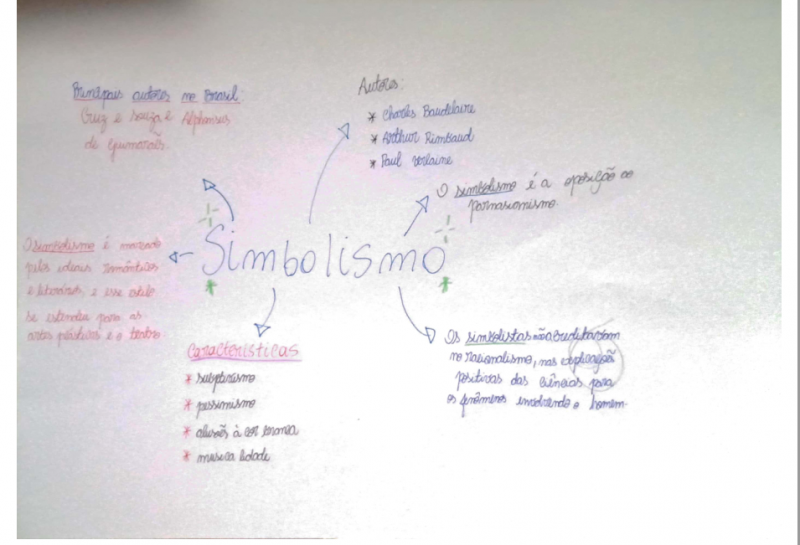 Principais autores no Brasil:
Cruz e Souza e Alphonsus
de Guimarães.
Autores:
* Charles Baudelaire
* Arthur Rimbaud
* Paul Verlaine
O simbolismo é a oposição ao
parnasionismo.
Simbolismo
O simbolismo é marcado
pelos ideais românticos
e literários, e esse estilo
se estendia para as
artes plásticas e o teatro
Características
* subjetivismo
* pessimismo
* alusões à cor branca
* musicalidade
Os simbolistas não acreditavam
no racionalismo, nas explicações
positivas das ciências para
os fenômenos envolvendo o homem.